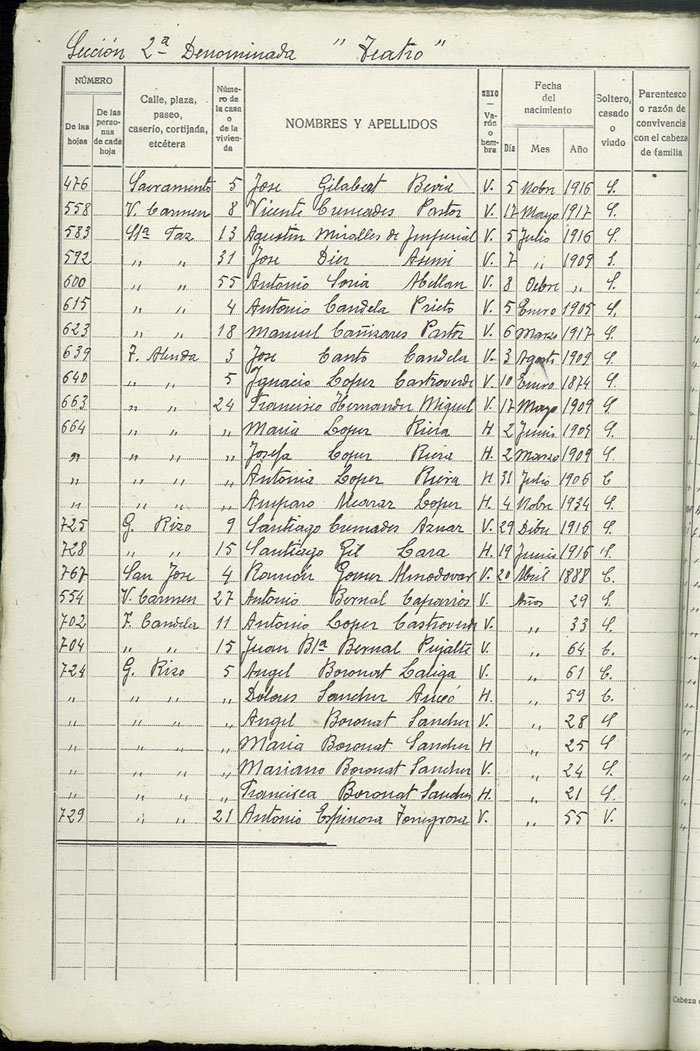 Sección 2ª Denominada "Teatro"
NÚMERO
De las hojas
De las personas de cada hoja
Calle, plaza, paseo, caserío, cortijada, etcétera
Número de la casa o de la vivienda
NOMBRES Y APELLIDOS
SEXO — Varón o hembra
Fecha del nacimiento
Día Mes Año
Soltero, casado o viudo
Parentesco o razón de convivencia con el cabeza de familia
476 Sacramento 5 Jose Gilabert Bevia V. 5 Nobre 1916 S.
558 V. Carmen 8 Vicente Cremades Pastor V. 17 Mayo 1917 S.
583 Sta Faz 13 Agustin Miralles de Imperial V. 5 Julio 1916 S.
592 " " 31 Jose Diez Asensi V. 7 " 1909 S.
600 " " 55 Antonio Soria Abellan V. 8 Octbre " S.
615 " " 4 Antonio Candela Prieto V. 5 Enero 1905 S.
623 " " 18 Manuel Cañizares Pastor V. 6 Marzo 1917 S.
639 3 Jose Canto Candela V. 3 Agosto 1909 S.
640 " " 5 Ignacio Lopez Castroverde V. 10 Enero 1874 S.
663 " " 24 Francisco Hernandez Miquel V. 17 Mayo 1909 S.
664 " " " Maria Lopez Riera H. 2 Junio 1909 S.
" " " " Josefa Lopez Riera H. 2 Marzo 1909 S.
" " " " Antonia Lopez Riera H 31 Julio 1906 C
" " " " Amparo Alcaraz Lopez H. 4 Nobre 1934 S.
725 G. Rizo 9 Santiago Cremades Aznar V. 29 Dibre 1916 S.
728 " " 15 Santiago Gil Lara H. 19 Junio 1916 S.
767 San Jose 4 Ramón Gomez Almodovar V. 20 Abril 1888 C.
554 V. Carmen 27 Antonio Bernal Caparrós V. Años 29 S.
702 F. Candela 11 Antonio Lopez Castroverde V. " 33 S.
704 " " 15 Juan Bta Bernal Pujalte V. " 64 C.
724 G. Rizo 5 Angel Boronat Laliga V. " 61 C.
" " " " Dolores Sanchez H. " 59 C.
" " " " Angel Boronat Sanchez V. " 28 S
" " " " Maria Boronat Sanchez H " 25 S
" " " " Mariano Boronat Sanchez V. " 24 S.
" " " " Francisca Boronat Sanchez H. " 21 S.
729 " " 21 Antonio Espinosa Torregrosa V. " 55 V.
Cabeza